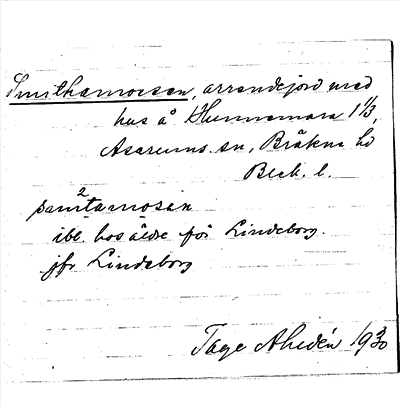 Smithamossen, arrendejord med
hus å Hunnemara 1 1/3,
Asarums sn, Bräkne hd
Blek. l.
smi²tamosan
ibl. hos äldre för Lindeborg.
jfr Lindeborg
Tage Ahldén 1930